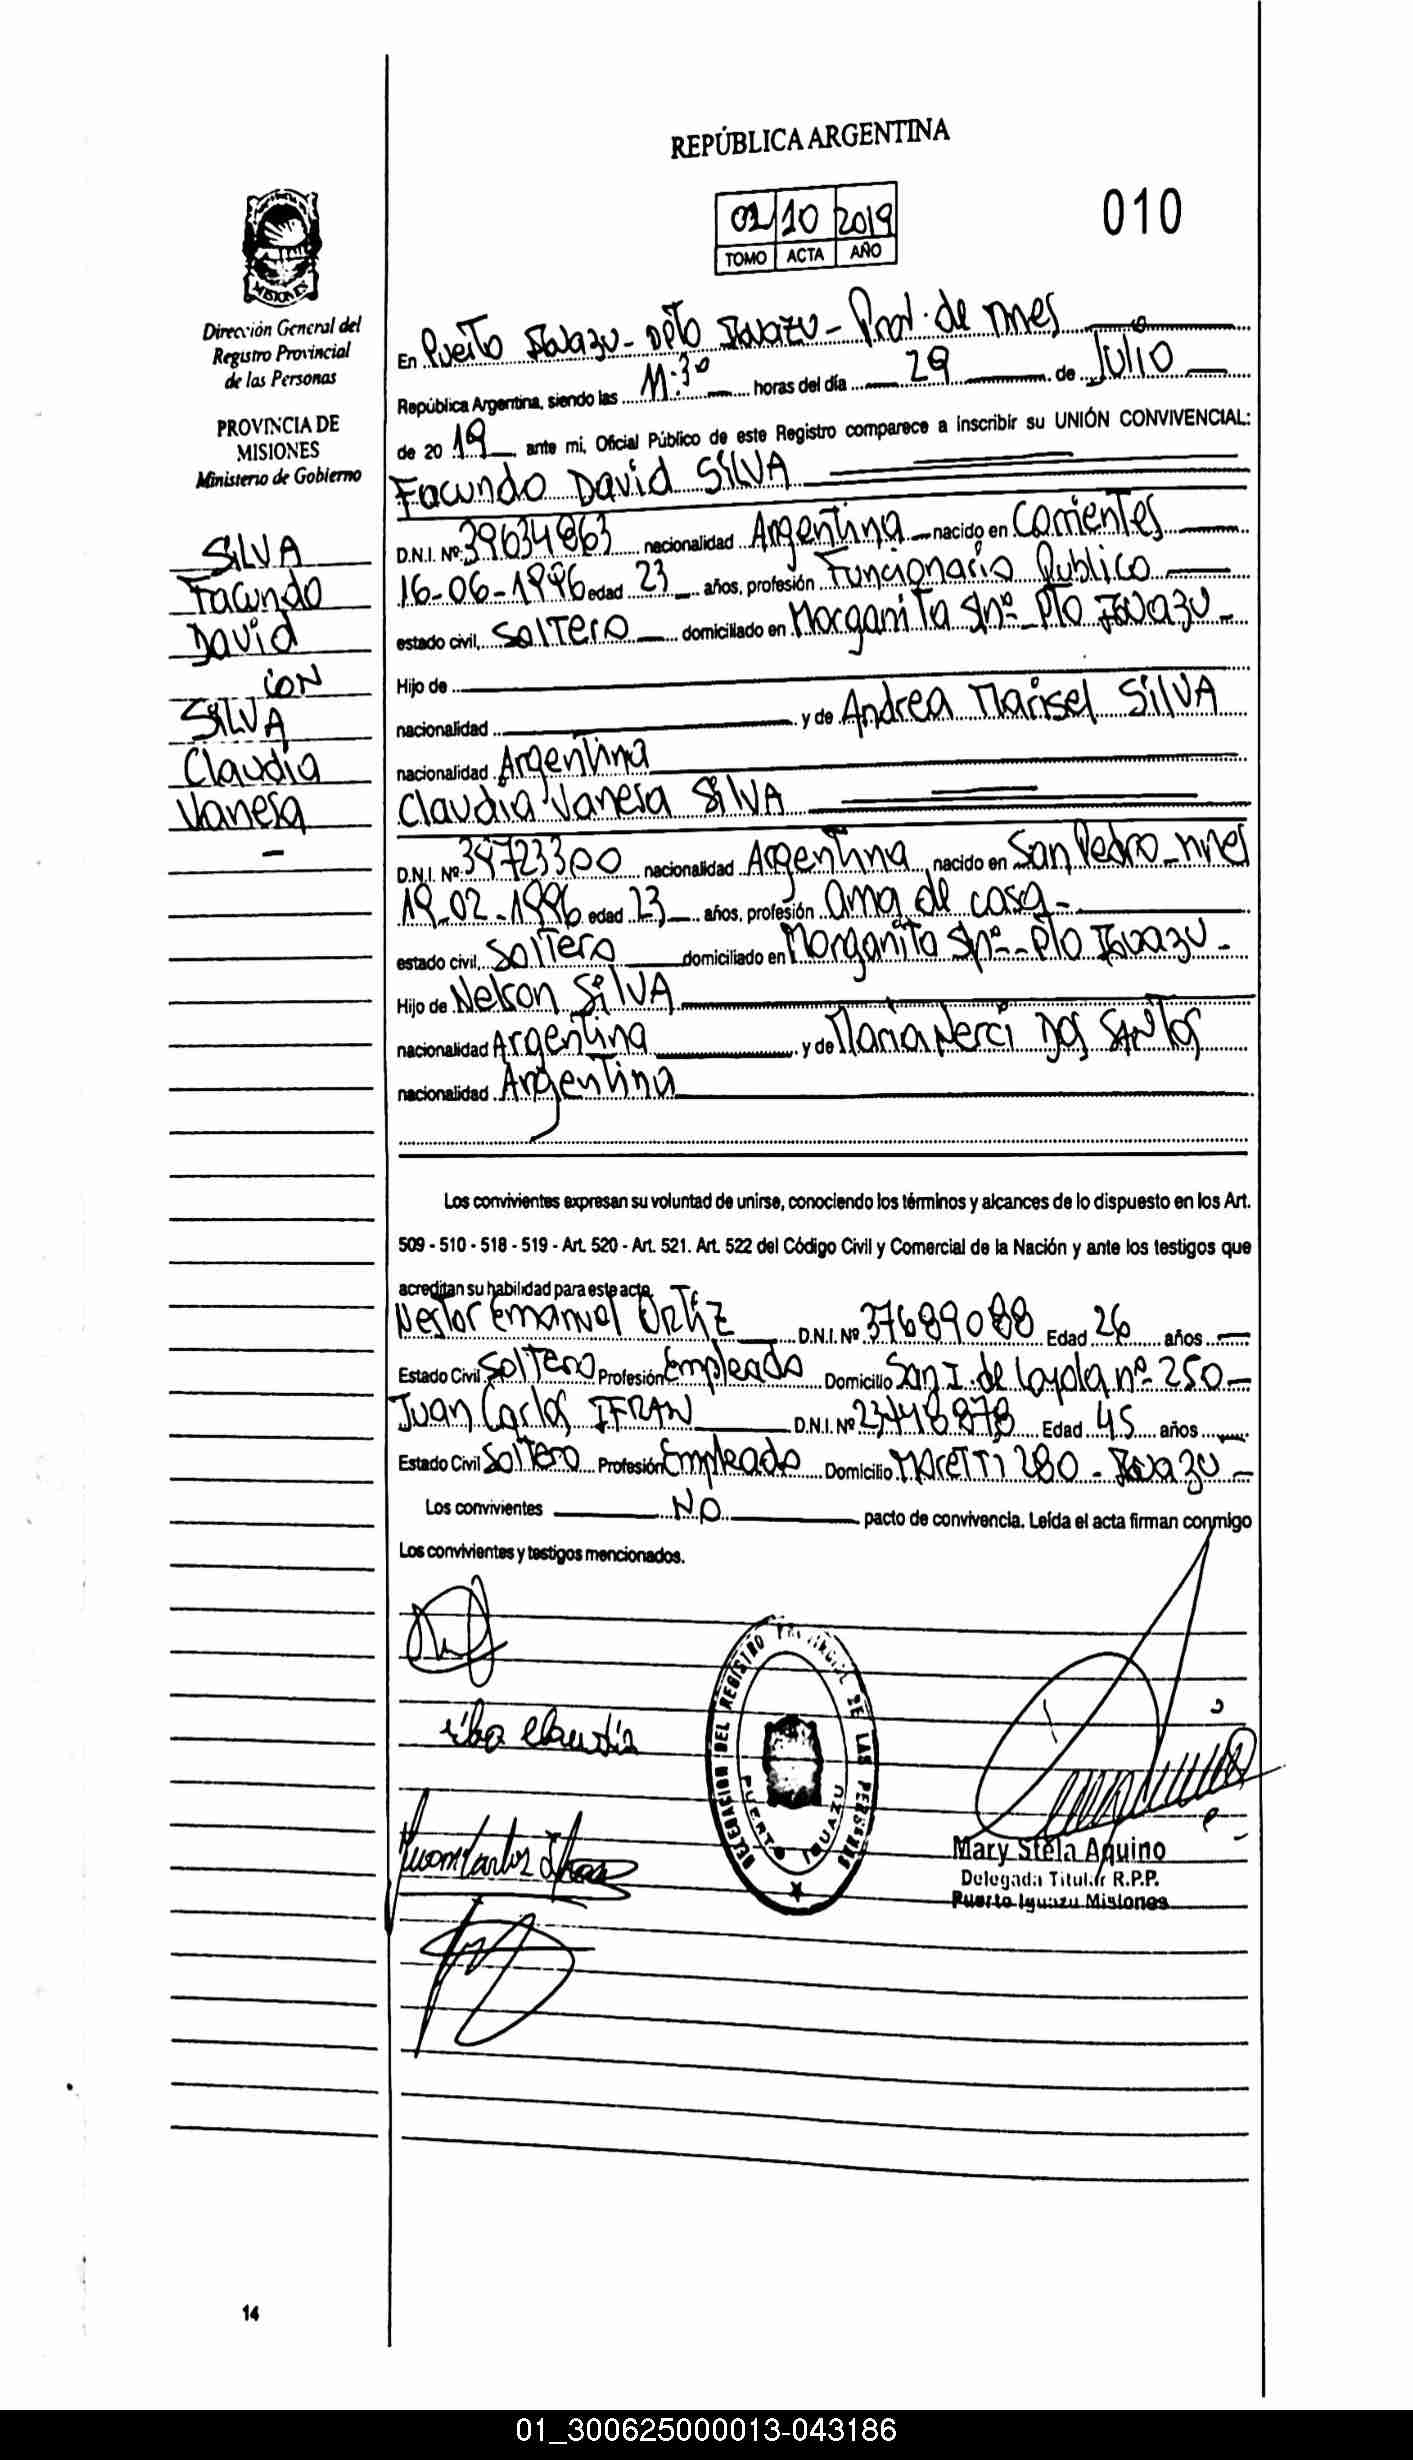 REPÚBLICA ARGENTINA
02 10 2019
TOMO ACTA AÑO
010
MISIONES
Dirección General del
Registro Provincial
de las Personas
PROVINCIA DE
MISIONES
Ministerio de Gobierno
SILVA
Facundo
David
CON
SILVA
Claudia
Vanesa
En Puerto Iguazu - Dpto Iguazu - Prov. de Mnes
República Argentina, siendo las 11:30 horas del día 29 de Julio
de 20 19 ante mi, Oficial Público de este Registro comparece a inscribir su UNIÓN CONVIVENCIAL:
Facundo David SILVA
D.N.I. Nº 39634863 nacionalidad Argentina nacido en Corrientes
16-06-1996 edad 23 años, profesión Funcionario Publico
estado civil, Soltero domiciliado en Morganita S/nº - Pto Iguazu -
Hijo de
nacionalidad y de Andrea Marisel SILVA
nacionalidad Argentina
Claudia Vanesa SILVA
D.N.I. Nº 39723300 nacionalidad Argentina nacido en San Pedro - Mnes
19-02-1996 edad 23 años, profesión ama de casa -
estado civil, Soltera domiciliado en Morganita S/nº - Pto Iguazu -
Hijo de Nelson SILVA
nacionalidad Argentina y de Maria Nerci Dos SANTOS
nacionalidad Argentina
Los convivientes expresan su voluntad de unirse, conociendo los términos y alcances de lo dispuesto en los Art.
509 - 510 - 518 - 519 - Art. 520 - Art. 521. Art. 522 del Código Civil y Comercial de la Nación y ante los testigos que
acreditan su habilidad para este acto.
Nestor Emanuel ORTIZ D.N.I. Nº 37689088 Edad 26 años
Estado Civil Soltero Profesión Empleado Domicilio San I. de Loyola nº 250 -
Juan Carlos IFRAN D.N.I. Nº 23448878 Edad 45 años
Estado Civil Soltero Profesión Empleado Domicilio Moretti 280 - Iguazu -
Los convivientes NO pacto de convivencia. Leída el acta firman conmigo
Los convivientes y testigos mencionados.
Claudia
Juan Carlos Ifran
DELEGACION DEL REGISTRO PROVINCIAL DE LAS PERSONAS
PUERTO IGUAZU
Mary Stela Aquino
Delegada Titular R.P.P.
Puerto Iguazu Misiones
14
01_300625000013-043186